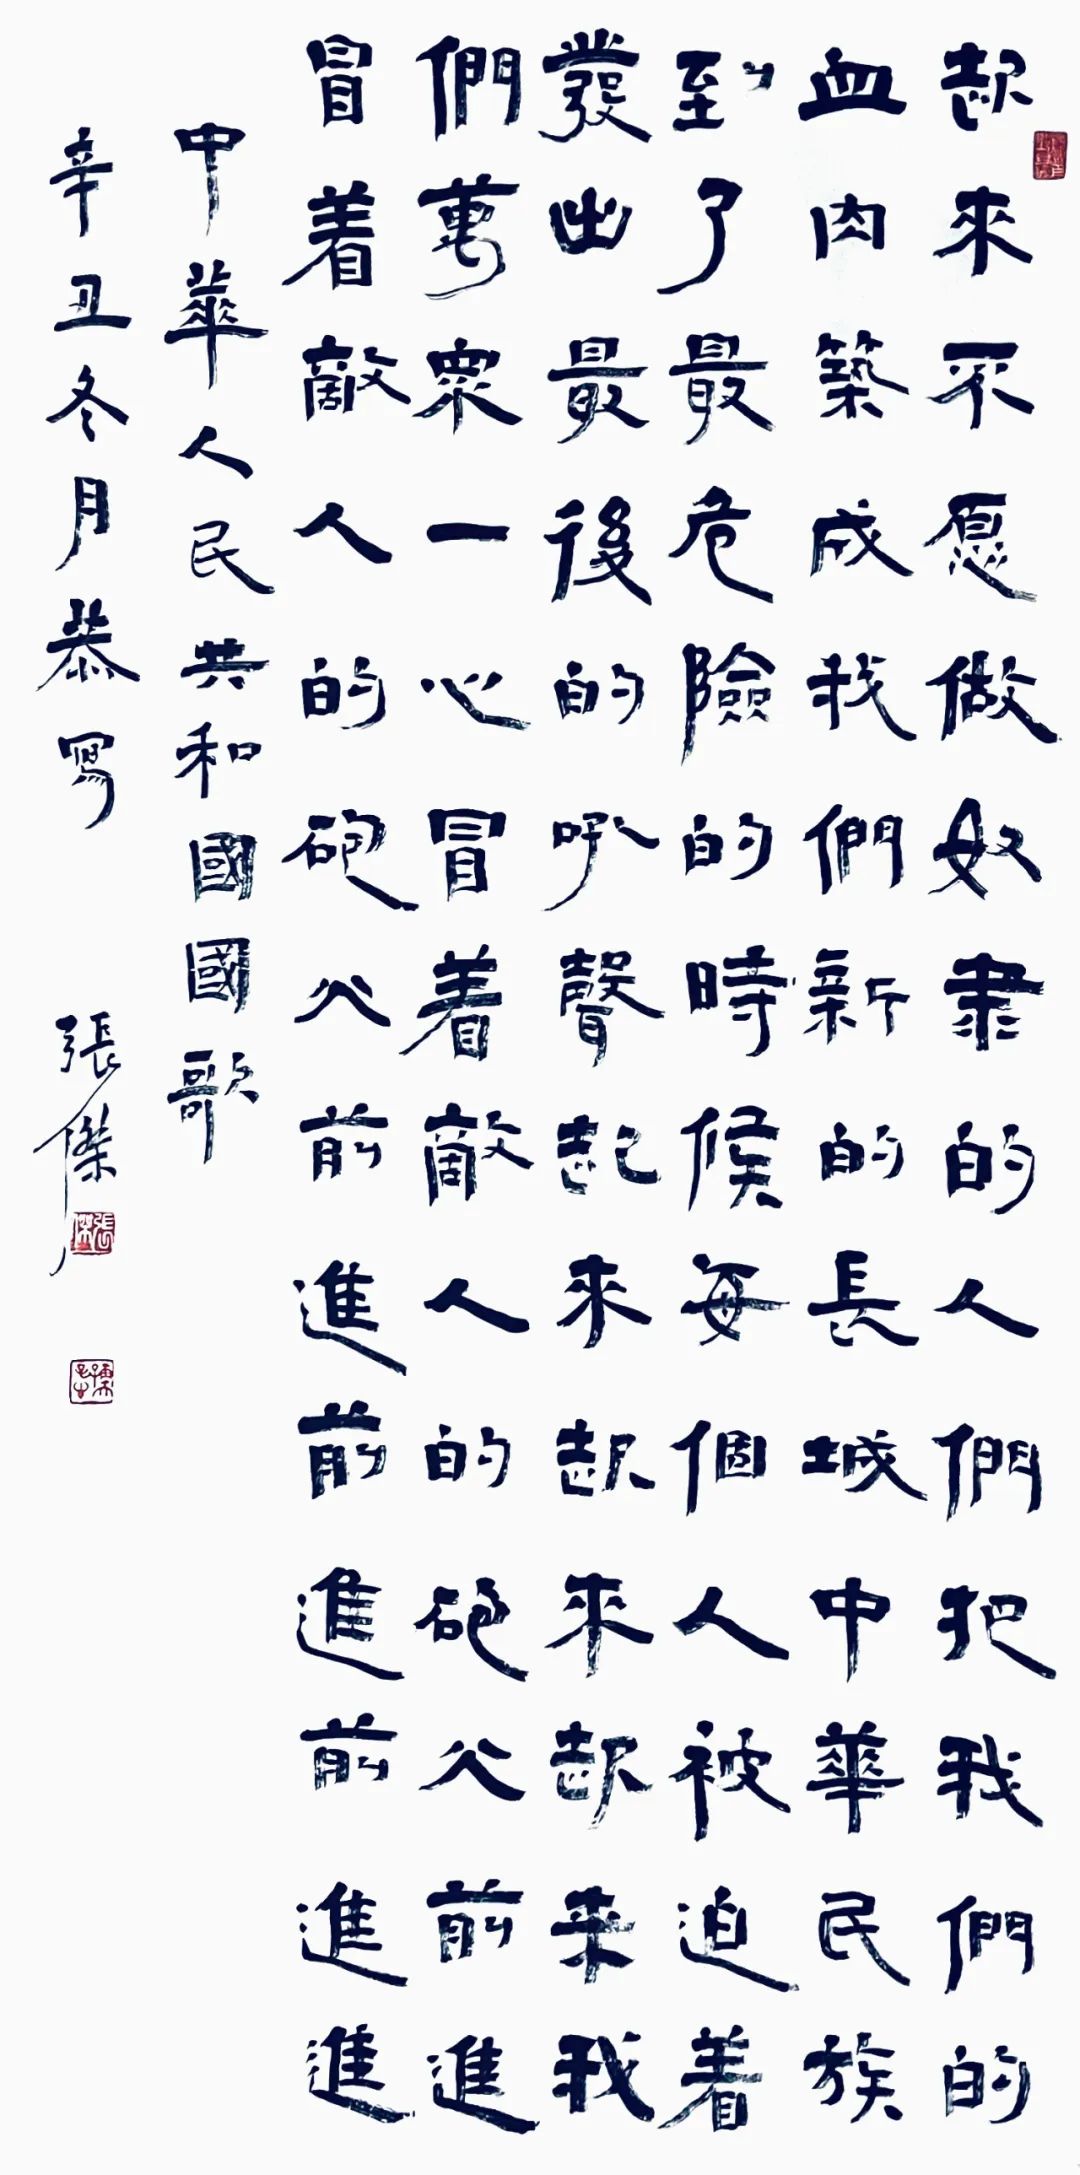 起來不愿做奴隶的人們把我們的
血肉築成我們新的長城中華民族
到了最危險的時候每個人被迫着
發出最後的吼聲起來起來起來我
們萬眾一心冒着敵人的砲火前進
冒着敵人的砲火前進前進前進進
中華人民共和國國歌
辛丑冬月恭寫 張傑
張傑